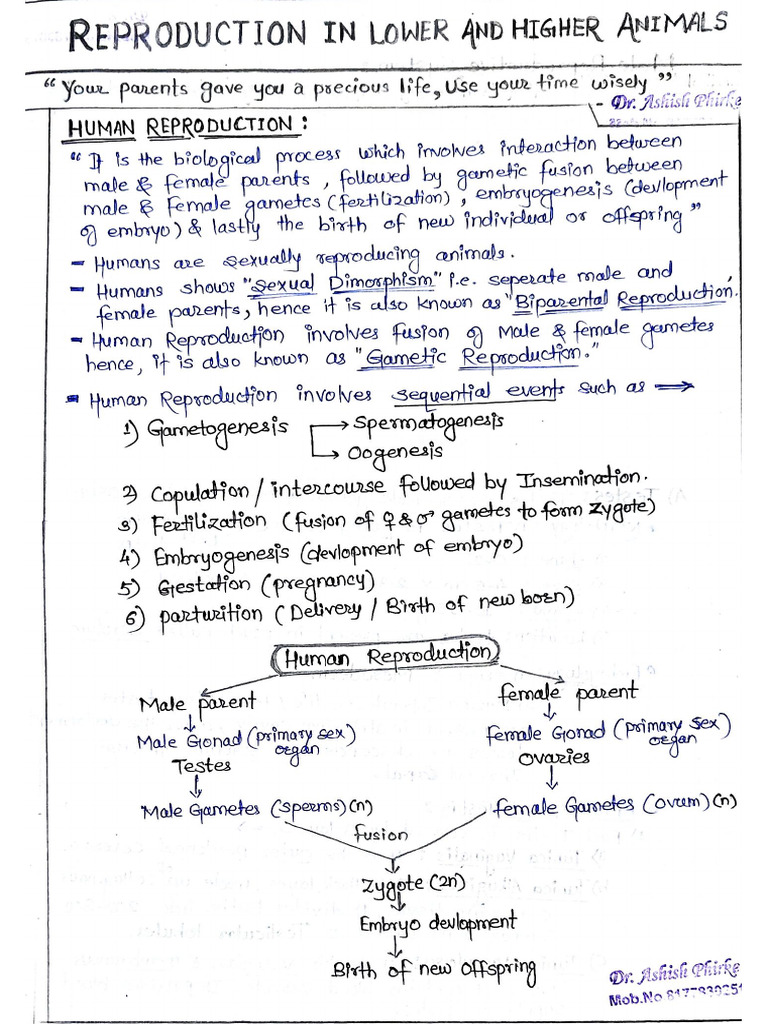 REPRODUCTION IN LOWER AND HIGHER ANIMALS
“Your parents gave you a precious life, Use your time wisely”
- Dr. Ashish Phirke
HUMAN REPRODUCTION :
“It is the biological process which involves interaction between
male & female parents, followed by gametic fusion between
male & female gametes (fertilization), embryogenesis (devlopment
of embryo) & lastly the birth of new individual or offspring”
- Humans are sexually reproducing animals.
- Humans shows "Sexual Dimorphism" i.e. seperate male and
female parents, hence it is also known as "Biparental Reproduction."
- Human Reproduction involves fusion of Male & female gametes
hence, it is also known as "Gametic Reproduction."
- Human Reproduction involves sequential events such as →
1) Gametogenesis → Spermatogenesis
→ Oogenesis
2) Copulation / intercourse followed by Insemination.
3) Fertilization (fusion of ♀ & ♂ gametes to form zygote)
4) Embryogenesis (devlopment of embryo)
5) Gestation (pregnancy)
6) parturition (Delivery / Birth of new born)
Human Reproduction
Male parent
female parent
Male Gonad (primary sex organ)
Female Gonad (primary sex organ)
Testes
Ovaries
Male Gametes (sperms) (n)
female Gametes (ovum) (n)
fusion
Zygote (2n)
Embryo devlopment
Birth of new Offspring
Dr. Ashish Phirke
Mob.No